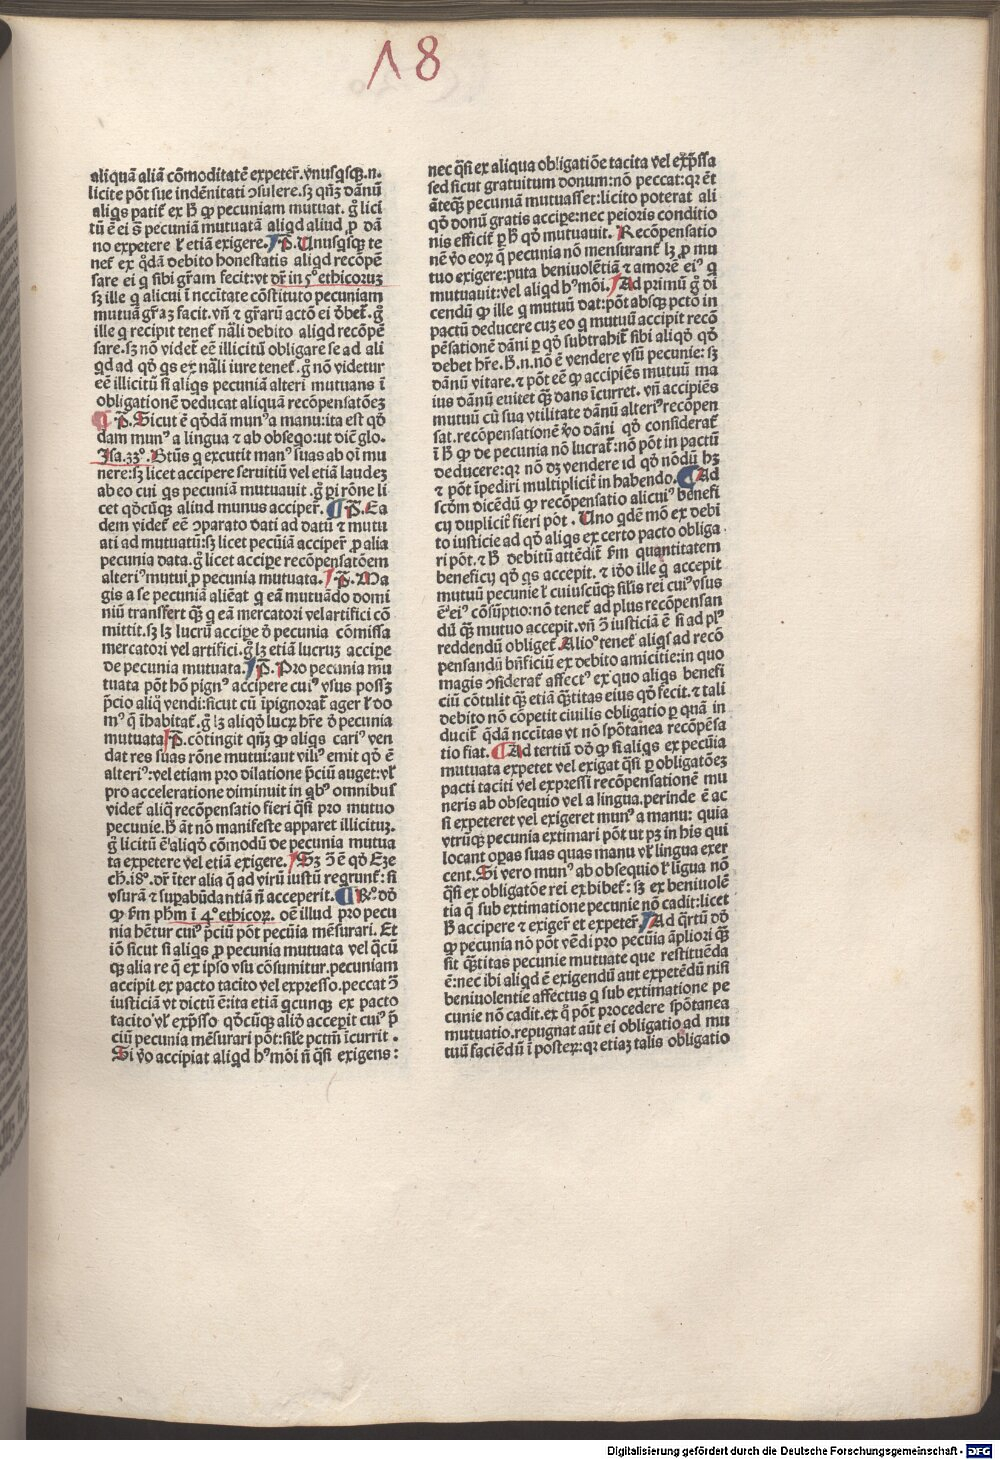 18
aliquā aliā cōmoditatē expeter̄. vnusqsqꝫ.n.
licite pōt sue indēnitati ↄsulere. sꝫ qn̄qꝫ dānū
aliqs patit̄ ex h̄ ꝙ pecuniam mutuat. gͦ lici
tū ē ei sͥ pecuniā mutuatā aliqd aliud ꝓ dā
no expetere vl̓ etiā exigere. ¶ P̄. Unusqsqꝫ te
net̄ ex qͦdā debito honestatis aliqd recōpē
sare ei q sibi gr̄am fecit: vt dr̄ in 5º ethicoruꝫ
sꝫ ille q alicui ī nccītate cōstituto pecuniam
mutuā gr̄aꝫ facit. vn̄ ⁊ gr̄arū actō ei dꝫbet̄. gͦ
ille q recipit tenet̄ nāli debito aliqd recōpē
sare. sꝫ nō videt̄ eē illicitū obligare se ad ali
qd ad qd̓ qs ex nāli iure tenet̄. gͦ nō videtur
eē illicitū si aliqs pecuniā alteri mutuans ī
obligationē deducat aliquā recōpensatōeꝫ
¶ P̄. Sicut ē qd̓dā munꝰ a manu: ita est qd̓
dam munꝰ a lingua ⁊ ab obseqo: ut dic̄ glo.
Isa. 33º. Btūs q excutit manꝰ suas ab oī mu
nere: sꝫ licet accipere seruitiū vel etiā laudeꝫ
ab eo cui qs pecuniā mutuauit. gͦ pi rōne li
cet qd̓cūqꝫ aliud munus acciper̄. ¶ P̄. Ea
dem videt̄ eē ↄparato dati ad datū ⁊ mutu
ati ad mutuatū: sꝫ licet pecūiā acciper̄ ꝓ alia
pecunia data. gͦ licet accipe recōpensatōem
alteriꝰ mutui ꝓ pecunia mutuata. ¶ P̄. Ma
gis a se pecuniā aliēat q eā mutuādo domi
niū transfert qꝫ q eā mercatori vel artifici cō
mittit. sꝫ lꝫ lucrū accipe d̓ pecunia cōmissa
mercatori vel artifici. gͦ lꝫ etiā lucruꝫ accipe
de pecunia mutuata. ¶ P̄. Pro pecunia mu
tuata pōt hō pignꝰ accipere cuiꝰ vsus possꝫ
p̄cio aliq vendi: sicut cū īpignorat̄ ager vl̓ do
mꝰ q īhabitat̄. gͦ lꝫ aliqd̓ lucꝝ hr̄e d̓ pecunia
mutuata ¶ P̄. cōtingit qn̄qꝫ ꝙ aliqs cariꝰ ven
dat res suas rōne mutui: aut viliꝰ emit qd̓ ē
alteriꝰ: vel etiam pro dilatione p̄ciū auget: vl̓
pro acceleratione diminuit in qbꝰ omnibus
videt̄ aliq recōpensatio fieri qsi pro mutuo
pecunie. h̄ at̄ nō manifeste apparet illicituꝫ.
gͦ licitū ē aliqd̓ cōmodū de pecunia mutua
ta expetere vel etiā exigere. ¶ Sꝫ ↄ̄ ē qd̓ Eze
ch. 18º. dr̄ īter alia q ad virū iustū regrunt̄: si
vsurā ⁊ supabūdantiā nō acceperit. ¶ Rº. dd̓
ꝙ ẜm phm̄ ī 4º ethicoꝝ. oē illud pro pecu
nia hētur cuiꝰ p̄ciū pōt pecūia mēsurari. Et
iō sicut si aliqs ꝓ pecunia mutuata vel qcū
qꝫ alia re q ex ipso vsu cōsumitur. pecuniam
accipit ex pacto tacito vel expresso. peccat ↄ̄
iusticiā vt dictū ē: ita etiā qcunqꝫ ex pacto
tacito vl̓ exp̄sso qd̓cūqꝫ aliud̓ acceꝑit cuiꝰ p̄
ciū pecunia mēsurari pōt: sile pctm̄ īcurrit.
Si v̓o accipiat aliqd hꝰmōi nō qsi exigens:
nec qsi ex aliqua obligatiōe tacita vel exp̄ssa
sed sicut gratuitum donum: nō peccat: qꝛ ēt
āteqꝫ pecuniā mutuasset: licito poterat ali
qd̓ donū gratis accipe: nec peioris conditio
nis efficit̄ ꝑ h̄ qd̓ mutuauit. Recōpensatio
nē v̓o eoꝝ q pecunia nō mensurant̄ lꝫ ꝓ mu
tuo exigere: puta beniuolētiā ⁊ amorē eiꝰ q
mutuauit: vel aliqd hꝰmōi. ¶ Ad primū gͦ di
cendū ꝙ ille q mutuū dat: pōt absqꝫ pctō in
pactū deducere cuꝫ eo q mutuū accipit recō
pēsationē dāni ꝑ qd̓ subtrahit̄ sibi aliqd̓ qd̓
debet hr̄e. h̄.n. nō ē vendere vsū pecunie: sꝫ
dānū vitare. ⁊ pōt eē ꝙ accipiēs mutuū ma
ius dānū euitet qꝫ dans īcurret. vn̄ accipiēs
mutuū cū sua vtilitate dānū alteriꝰ recōpen
sat. recōpensationē v̓o dāni qd̓ considerat̄
ī h̄ ꝙ de pecunia nō lucrat̄: nō pōt in pactū
deducere: qꝛ nō dꝫ vendere id qd̓ nōdū hꝫ
⁊ pōt īpediri multiplicit̄ in habendo. ¶ Ad
scd̓m dicēdū ꝙ recōpensatio alicuiꝰ benefi
cij duplicit̄ fieri pōt. Uno qdē mō ex debi
to iusticie ad qd̓ aliqs ex certo pacto obliga
ri pōt. ⁊ h̄ debitū attēdit̄ ẜm quantitatem
beneficij qd̓ qs accepit. ⁊ id̓o ille q accepit
mutuū pecunie vl̓ cuiuscūqꝫ silis rei cuiꝰ vsus
ē eiꝰ cōsūptio: nō tenet̄ ad plus recōpensan
dū qꝫ mutuo accepit. vn̄ ↄ̄ iusticiā ē si ad plꝰ
reddendū obliget̄. Alioº tenet̄ aliqs ad recō
pensandū bn̄ficiū ex debito amicitie: in quo
magis ↄsiderat̄ affectꝰ ex quo aliqs benefi
ciū cōtulit qꝫ etiā qͣtitas eius qd̓ fecit. ⁊ tali
debito nō cōpetit ciuilis obligatio ꝑ quā in
ducit̄ qd̄ā nccītas vt nō spōtanea recōpēsa
tio fiat. ¶ Ad tertiū dd̓ ꝙ si aliqs ex pecūia
mutuata expetet vel exigat qsi ꝑ obligatōeꝫ
pacti taciti vel expressi recōpensationē mu
neris ab obsequio vel a lingua. perinde ē ac
si expeteret vel exigeret munꝰ a manu: quia
vtrūqꝫ pecunia extimari pōt ut pꝫ in his qui
locant oꝑas suas quas manu vl̓ lingua exer
cent. Si vero munꝰ ab obsequio vl̓ līgua nō
qsi ex obligatōe rei exhibet̄: sꝫ ex beniuolē
tia q sub extimatione pecunie nō cadit: licet
h̄ accipere ⁊ exiger̄ et expeter̄. ¶ Ad qrtū dd̓
ꝙ pecunia nō pōt vēdi pro pecūia āpliori qꝫ
sit qͣtitas pecunie mutuate que restituēda
ē: nec ibi aliqd ē exigendū aut expetēdū nisi
beniuolentie affectus q sub extimatione pe
cunie nō cadit. ex q pōt procedere spōtanea
mutuatio. repugnat aūt ei obligatio ad mu
tuū faciēdū ī posteꝝ: qꝛ etiaꝫ talis obligatio
Digitalisierung gefördert durch die Deutsche Forschungsgemeinschaft - DFG